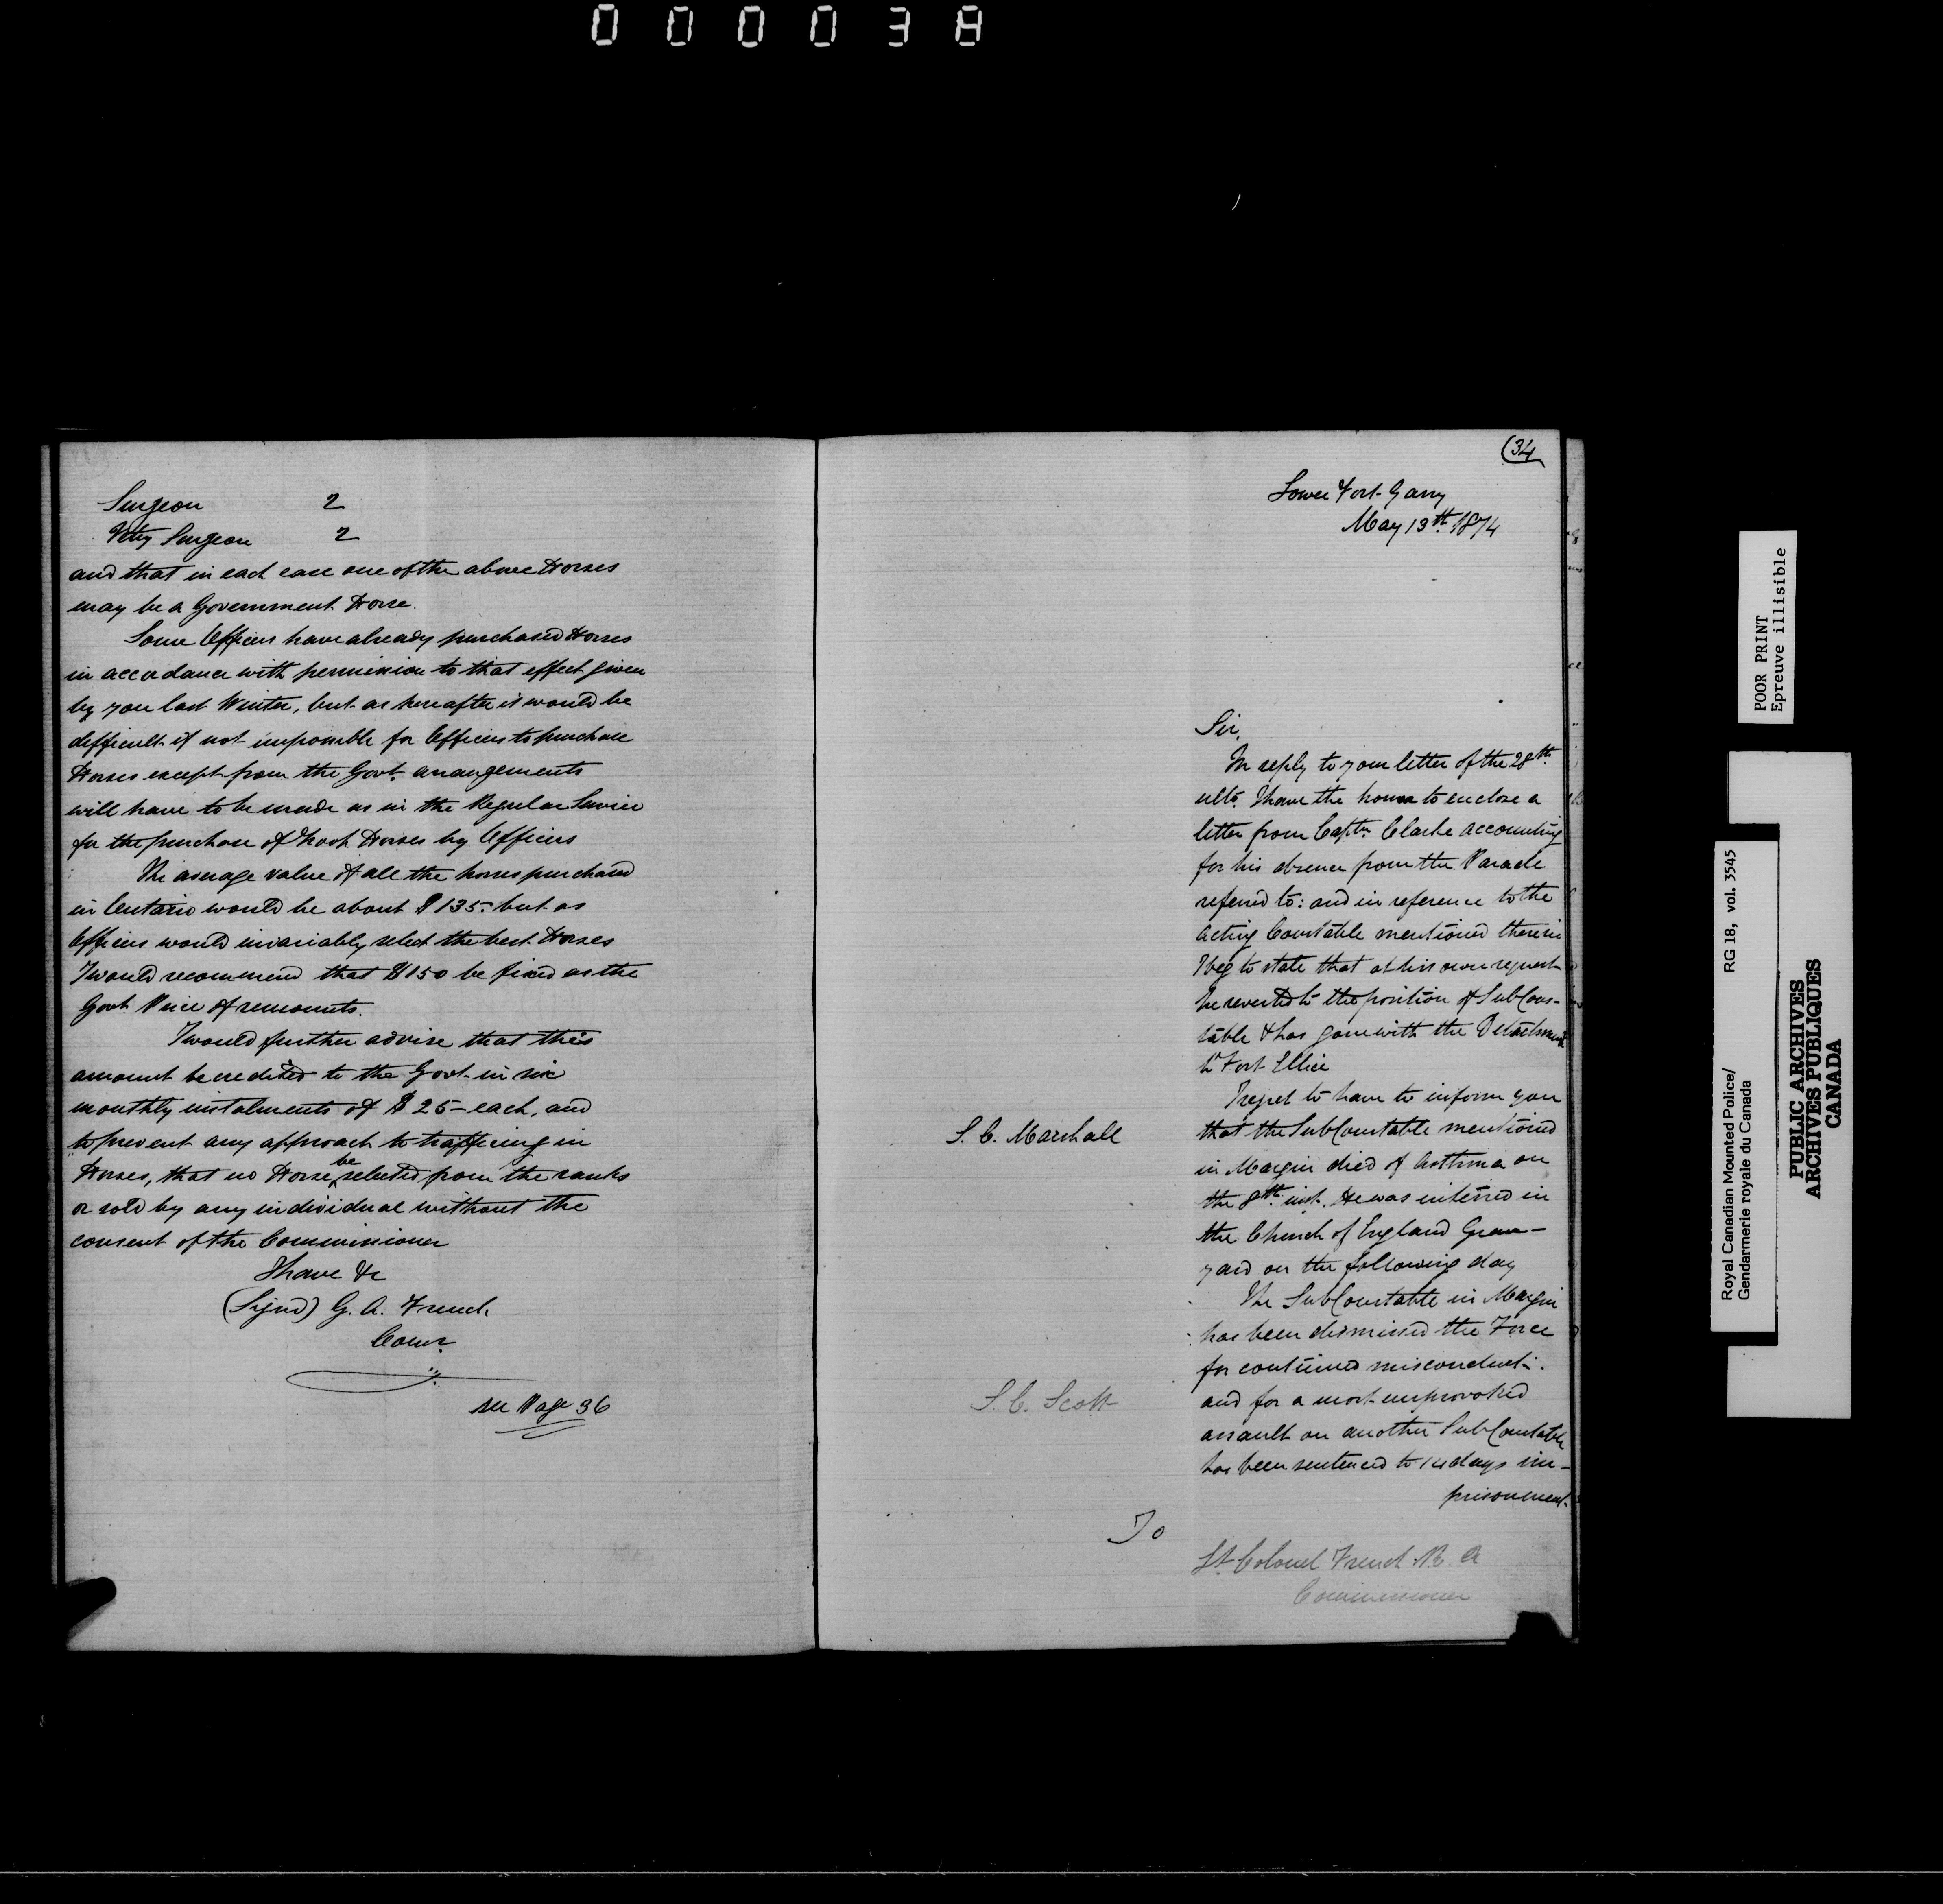 000038
Surgeon 2
Vety Surgeon 2
and that in each case one of the above Horses
may be a Government Horse.
Some Officers have already purchased Horses
in accordance with permission to that effect given
by you last Winter, but as hereafter it would be
difficult if not impossible for Officers to purchase
Horses except from the Govt. arrangements
will have to be made as in the Regular Service
for the purchase of Troop Horses by Officers
The average value of all the horses purchased
in Ontario would be about $135. but as
Officers would invariably select the best Horses
I would recommend that $150 be fixed as the
Govt Price of remounts.
I would further advise that this
amount be credited to the Govt. in six
monthly instalments of $25- each, and
to prevent any approach to trafficing in
Horses, that no Horse be selected from the ranks
or sold by any individual without the
consent of the Commissioner
I have &c
(Signd) G. A. French
Comr.
see Page 36
(34
Lower Fort Garry
May 13th 1874
Sir,
In reply to your letter of the 28th
ulto. I have the honor to enclose a
letter from Captn Clarke accounting
for his absence from the Parade
referred to: and in reference to the
Acting Constable mentioned therein
I beg to state that at his own request
he reverted to the position of Sub Cons-
table & has gone with the Detachment
to Fort Ellice
I regret to have to inform you
S. C. Marshall that the Sub Constable mentioned
in Margin died of Asthma on
the 8th inst. He was interred in
the Church of England Grave-
yard on the following day
The Sub Constable in Margin
has been dismissed the Force
for continued misconduct.
S. C. Scott and for a most unprovoked
assault on another Sub Constable
has been sentenced to 14 days im-
prisonment.
To
Lt. Colonel French R. A
Commissioner
POOR PRINT
Epreuve illisible
Royal Canadian Mounted Police/ RG 18, vol. 3545
Gendarmerie royale du Canada
PUBLIC ARCHIVES
ARCHIVES PUBLIQUES
CANADA